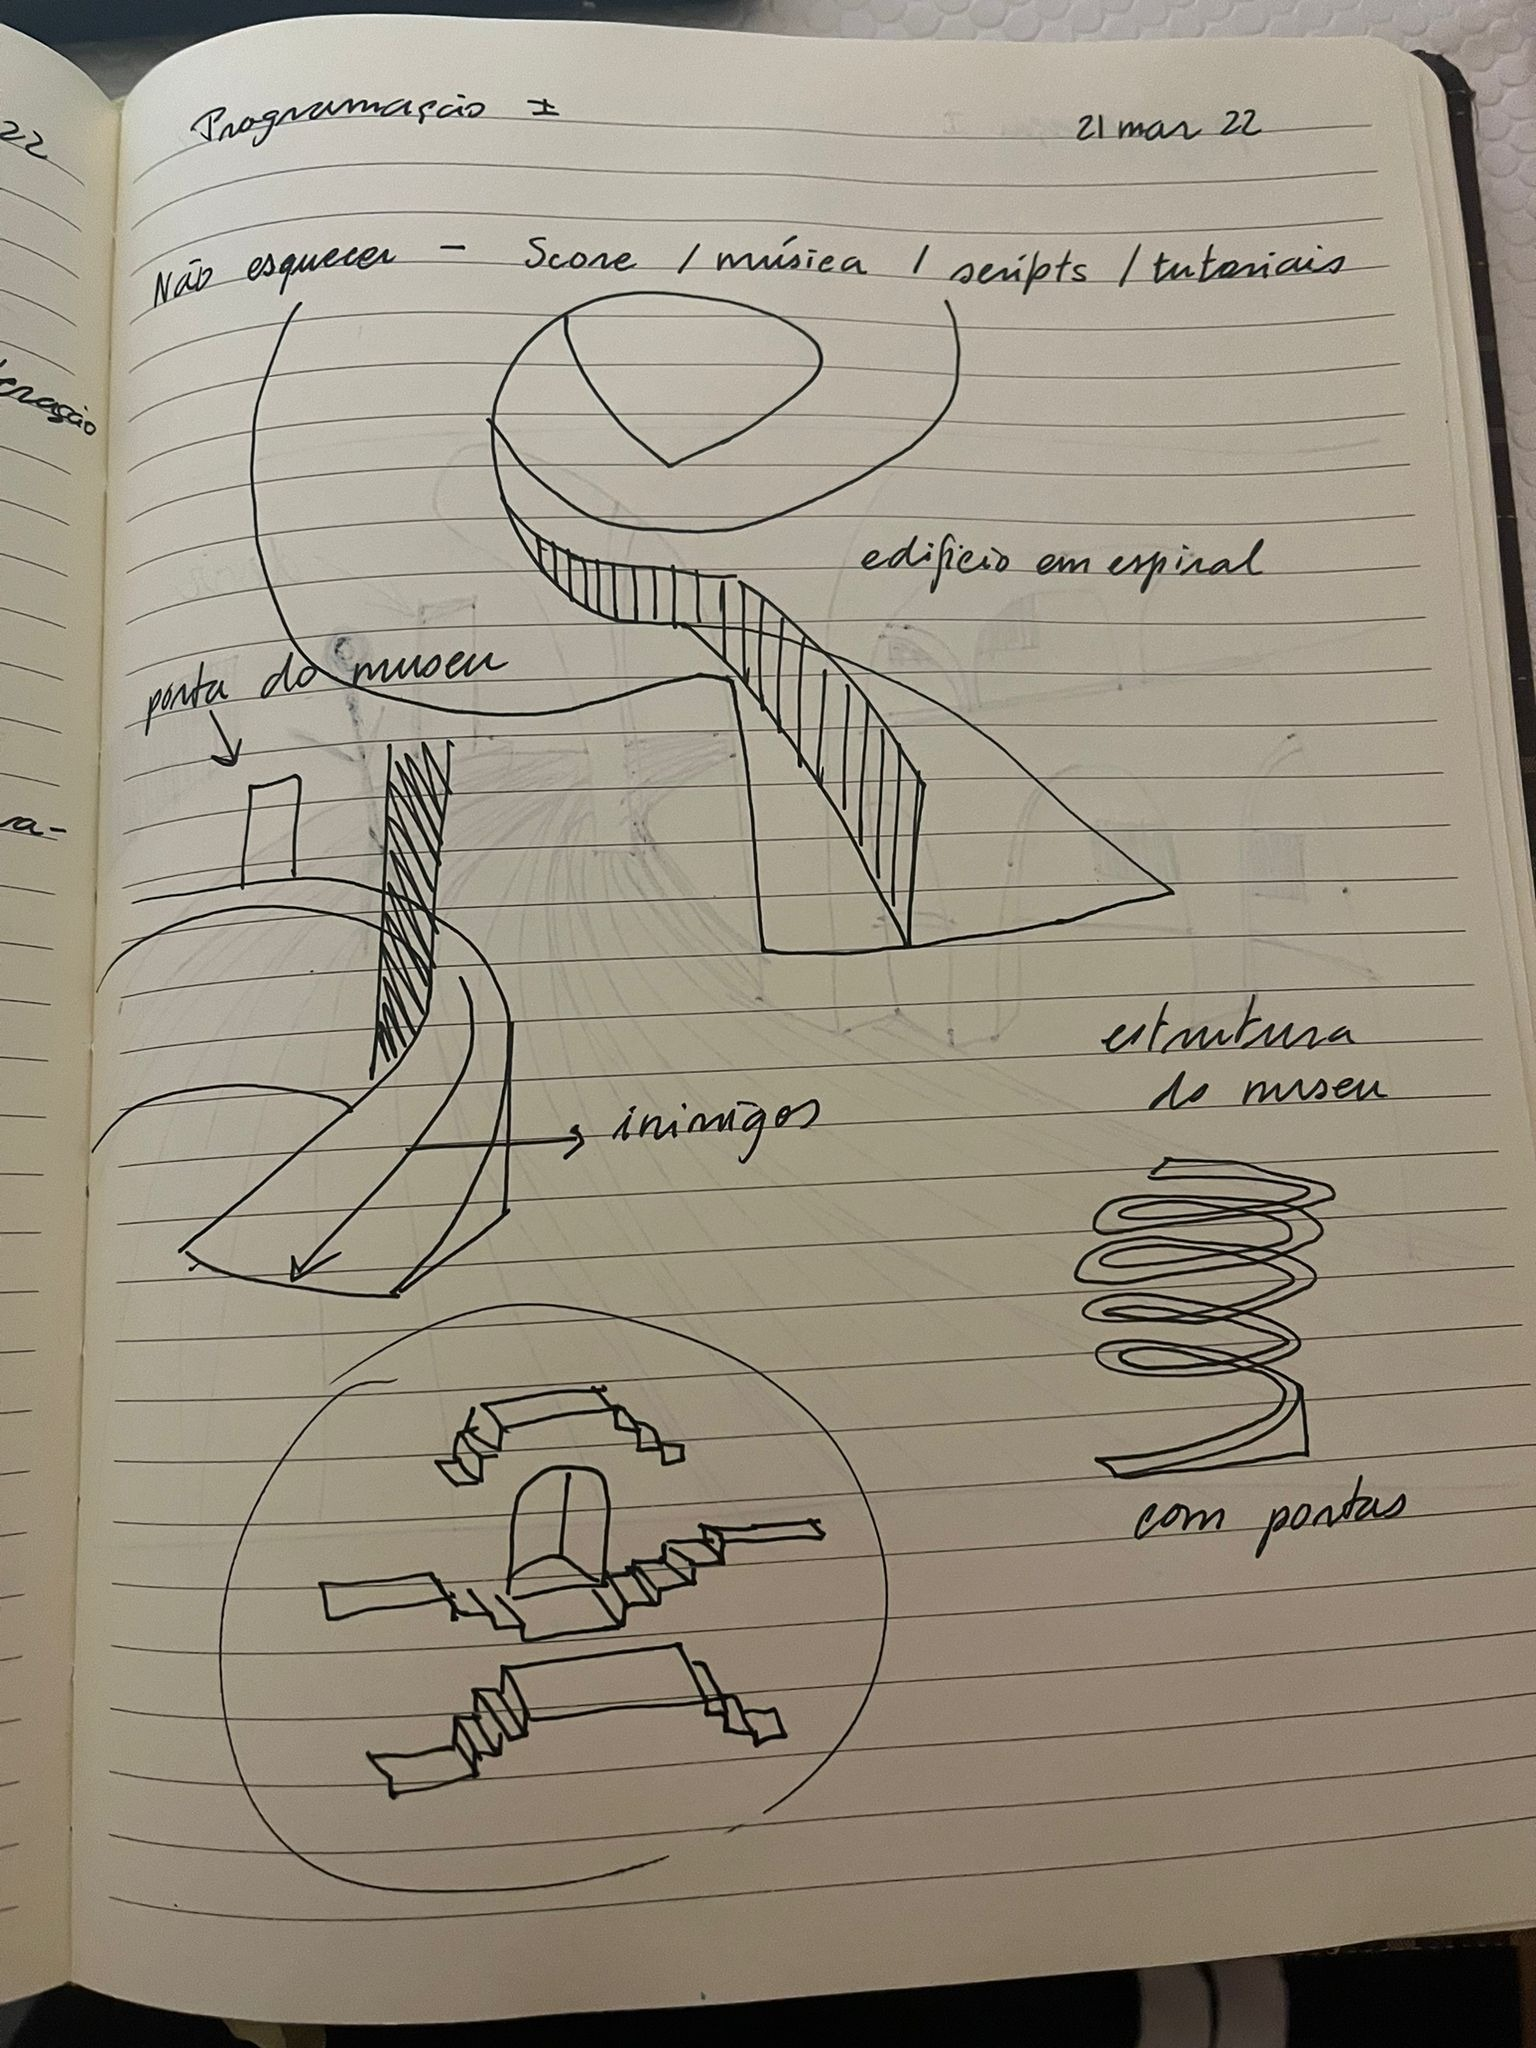 22
Programação I
21 mar 22
Não esquecer - Score / música / scripts / tutoriais
edificio em espiral
porta do museu
inimigos
estrutura
do museu
com portas